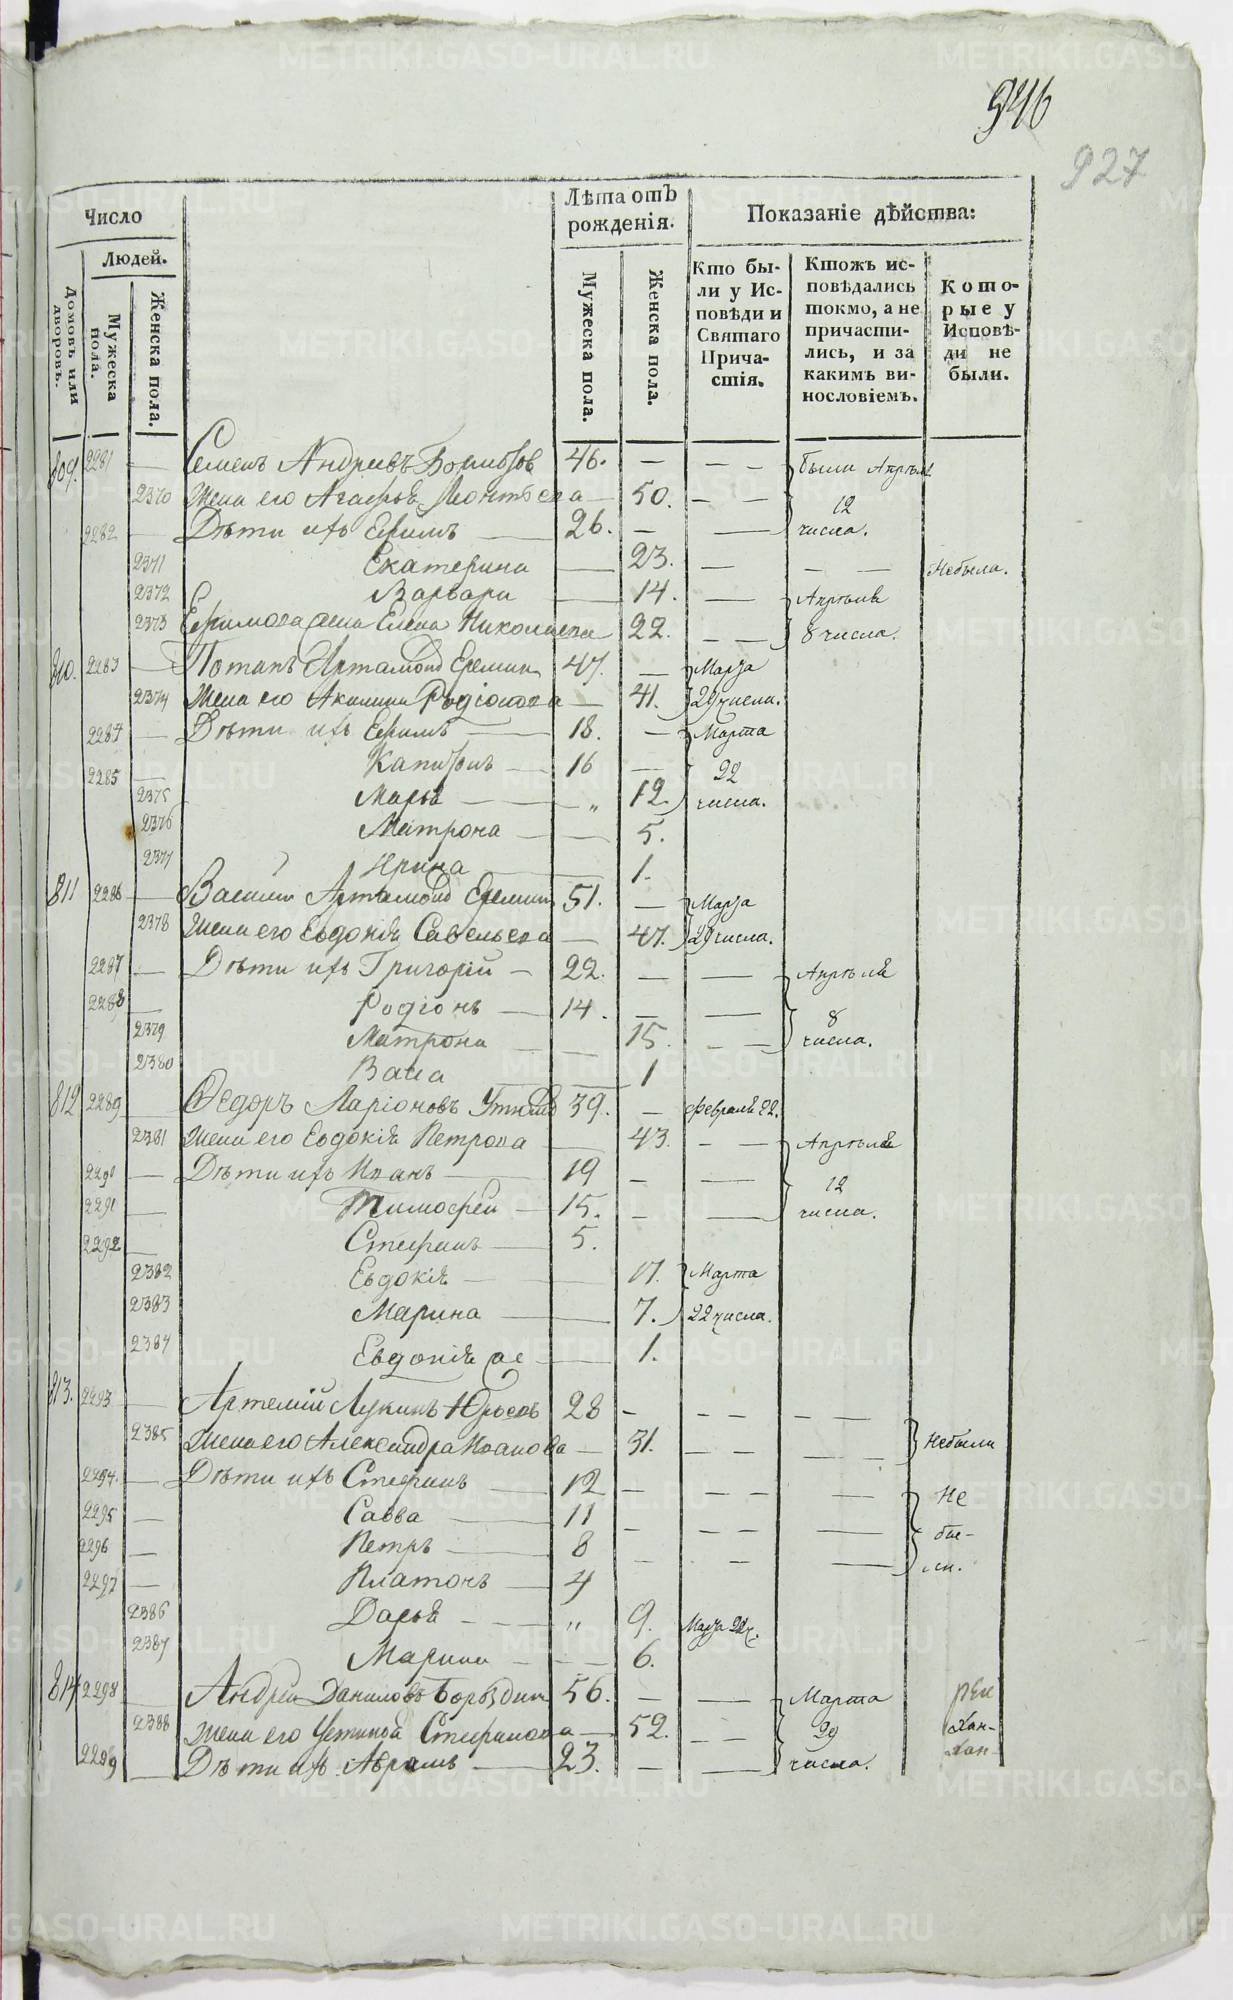 946
927
Число
Людей.
Домовъ или дворовъ.
Мужеска пола.
Женска пола.
Лѣта отъ рожденія.
Мужеска пола.
Женска пола.
Показаніе дѣйства:
Кто были у Исповѣди и Святаго Причастія.
Ктожъ исповѣдались токмо, а не причастились, и за какимъ винословіемъ.
Которые у Исповѣди не были.
809. 2281 — Семенъ Андреевъ 46. — — — были Апрѣля
2370 Жена его Агафья Леонтьева — 50. — — 12
2282 — Дѣти ихъ Ефимъ — 26. — — числа.
2371 Екатерина — 23. — — — Небыла.
2372 Варвара — 14. — Апрѣля
2373 Ефимова жена Елена Николаева 22. — — 8 числа.
810. 2283 — Потапъ Артамоновъ Еремин 47. — Марта
2374 Жена его Акилина Родіонова — 41. 29 числа.
2284 — Дѣти ихъ Ефимъ — 18. — Марта
2285 — Капитонъ — 16 — 22
2375 Марья — „ 12. числа.
2376 Матрона — — 5.
2377 Ирина — 1.
811 2286 — Василий Артамоновъ Еремин 51. — Марта
2378 Жена его Евдокія Савельева — 47. 29 числа.
2287 — Дѣти ихъ Григорій — 22. — — Апрѣля
2288 — Родіонъ — 14. — — 8
2379 Матрона — — 15. — — числа.
2380 Васса — 1
812 2289 — Ѳедоръ Ларіоновъ 39. — Февраля 22.
2381 Жена его Евдокія Петрова — 43. — — Апрѣля
2290 — Дѣти ихъ Иванъ — 19 — — 12
2291 — Тимофей — 15. — — числа.
2292 — Стефанъ — 5.
2382 Евдокія — — 17. Марта
2383 Марина — — 7. 22 числа.
2384 Евдокія же — 1.
813. 2293 — Артемій Лукинъ Юрьевъ 28 — — — — —
2385 Жена его Александра Иванова — 31. — — — — Небыли
2294. — Дѣти ихъ Стефанъ — 12 — — — — Не
2295 — Савва — 11 — — — — бы-
2296 — Петръ — 8 — — — ли.
2297 — Платонъ — 4
2386 Дарья — — „ 9. Марта 22 ч.
2387 Марина — — — 6.
814 2298 — Андрей Даниловъ Бороздин 56. — — Марта
2388 Жена его Устинья Стефанова — 52. — — 29
2299 — Дѣти ихъ Аврамъ — 23. — — числа.
METRIKI.GASO-URAL.RU